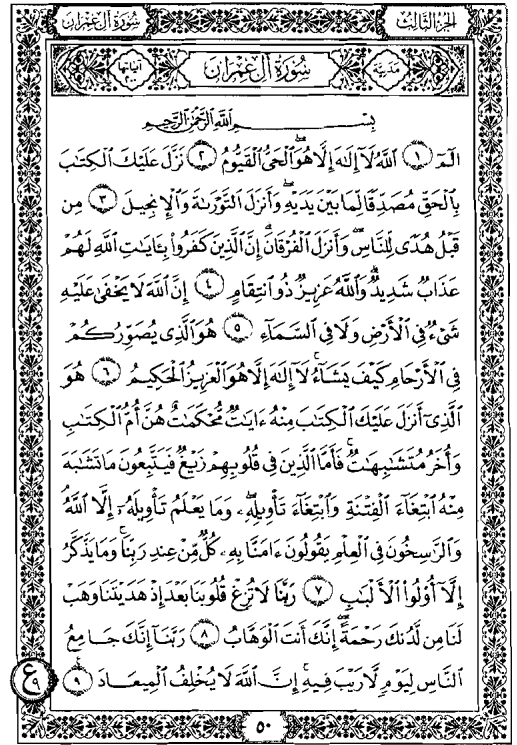 الجزء الثالث
سورة آل عمران
مدنية
سورة آل عمران
آياتها
٢٠٠
بِسْمِ اللَّهِ الرَّحْمَٰنِ الرَّحِيمِ
الٓمٓ ١ ٱللَّهُ لَآ إِلَٰهَ إِلَّا هُوَ ٱلْحَىُّ ٱلْقَيُّومُ ٢ نَزَّلَ عَلَيْكَ ٱلْكِتَٰبَ
بِٱلْحَقِّ مُصَدِّقًا لِّمَا بَيْنَ يَدَيْهِ وَأَنزَلَ ٱلتَّوْرَىٰةَ وَٱلْإِنجِيلَ ٣ مِن
قَبْلُ هُدًى لِّلنَّاسِ وَأَنزَلَ ٱلْفُرْقَانَ إِنَّ ٱلَّذِينَ كَفَرُوا۟ بِـَٔايَٰتِ ٱللَّهِ لَهُمْ
عَذَابٌ شَدِيدٌ وَٱللَّهُ عَزِيزٌ ذُو ٱنتِقَامٍ ٤ إِنَّ ٱللَّهَ لَا يَخْفَىٰ عَلَيْهِ
شَىْءٌ فِى ٱلْأَرْضِ وَلَا فِى ٱلسَّمَآءِ ٥ هُوَ ٱلَّذِى يُصَوِّرُكُمْ
فِى ٱلْأَرْحَامِ كَيْفَ يَشَآءُ لَآ إِلَٰهَ إِلَّا هُوَ ٱلْعَزِيزُ ٱلْحَكِيمُ ٦ هُوَ
ٱلَّذِىٓ أَنزَلَ عَلَيْكَ ٱلْكِتَٰبَ مِنْهُ ءَايَٰتٌ مُّحْكَمَٰتٌ هُنَّ أُمُّ ٱلْكِتَٰبِ
وَأُخَرُ مُتَشَٰبِهَٰتٌ فَأَمَّا ٱلَّذِينَ فِى قُلُوبِهِمْ زَيْغٌ فَيَتَّبِعُونَ مَا تَشَٰبَهَ
مِنْهُ ٱبْتِغَآءَ ٱلْفِتْنَةِ وَٱبْتِغَآءَ تَأْوِيلِهِۦ وَمَا يَعْلَمُ تَأْوِيلَهُۥٓ إِلَّا ٱللَّهُ
وَٱلرَّٰسِخُونَ فِى ٱلْعِلْمِ يَقُولُونَ ءَامَنَّا بِهِۦ كُلٌّ مِّنْ عِندِ رَبِّنَا وَمَا يَذَّكَّرُ
إِلَّآ أُو۟لُوا۟ ٱلْأَلْبَٰبِ ٧ رَبَّنَا لَا تُزِغْ قُلُوبَنَا بَعْدَ إِذْ هَدَيْتَنَا وَهَبْ
لَنَا مِن لَّدُنكَ رَحْمَةً إِنَّكَ أَنتَ ٱلْوَهَّابُ ٨ رَبَّنَآ إِنَّكَ جَامِعُ
ٱلنَّاسِ لِيَوْمٍ لَّا رَيْبَ فِيهِ إِنَّ ٱللَّهَ لَا يُخْلِفُ ٱلْمِيعَادَ ٩
ع ٩
٥٠